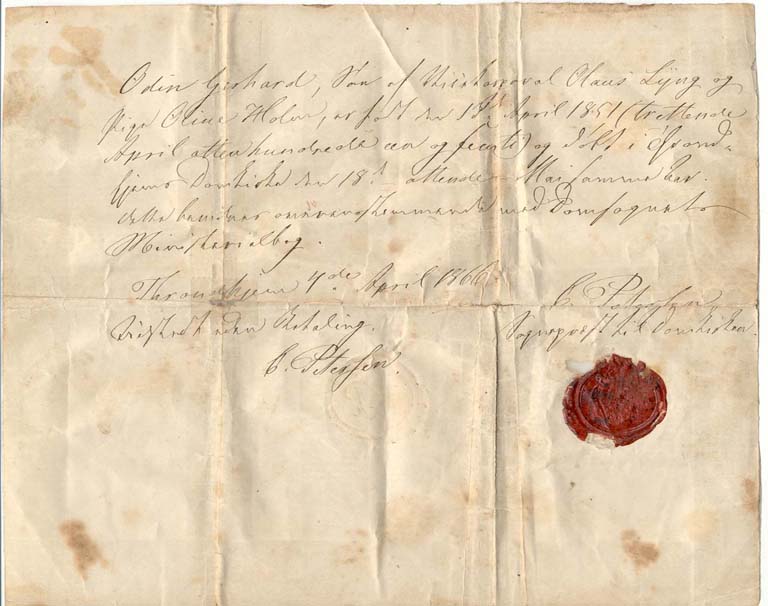 Odin Gerhard, Søn af Vicekorporal Olaus Lyng og
Pige Oline Holm, er født den 13de April 1851 (trettende
April attenhundrede een og femti) og døbt i Thrond-
hjems Domkirke den 18de attende Mai samme Aar.
dette bevidnes overensstemmende med Domsognets
Ministerialbog.
Throndhjem 4de April 1866.
C. Petersen
Sognepræst til Domkirken.
uden Betaling.
C. Petersen.